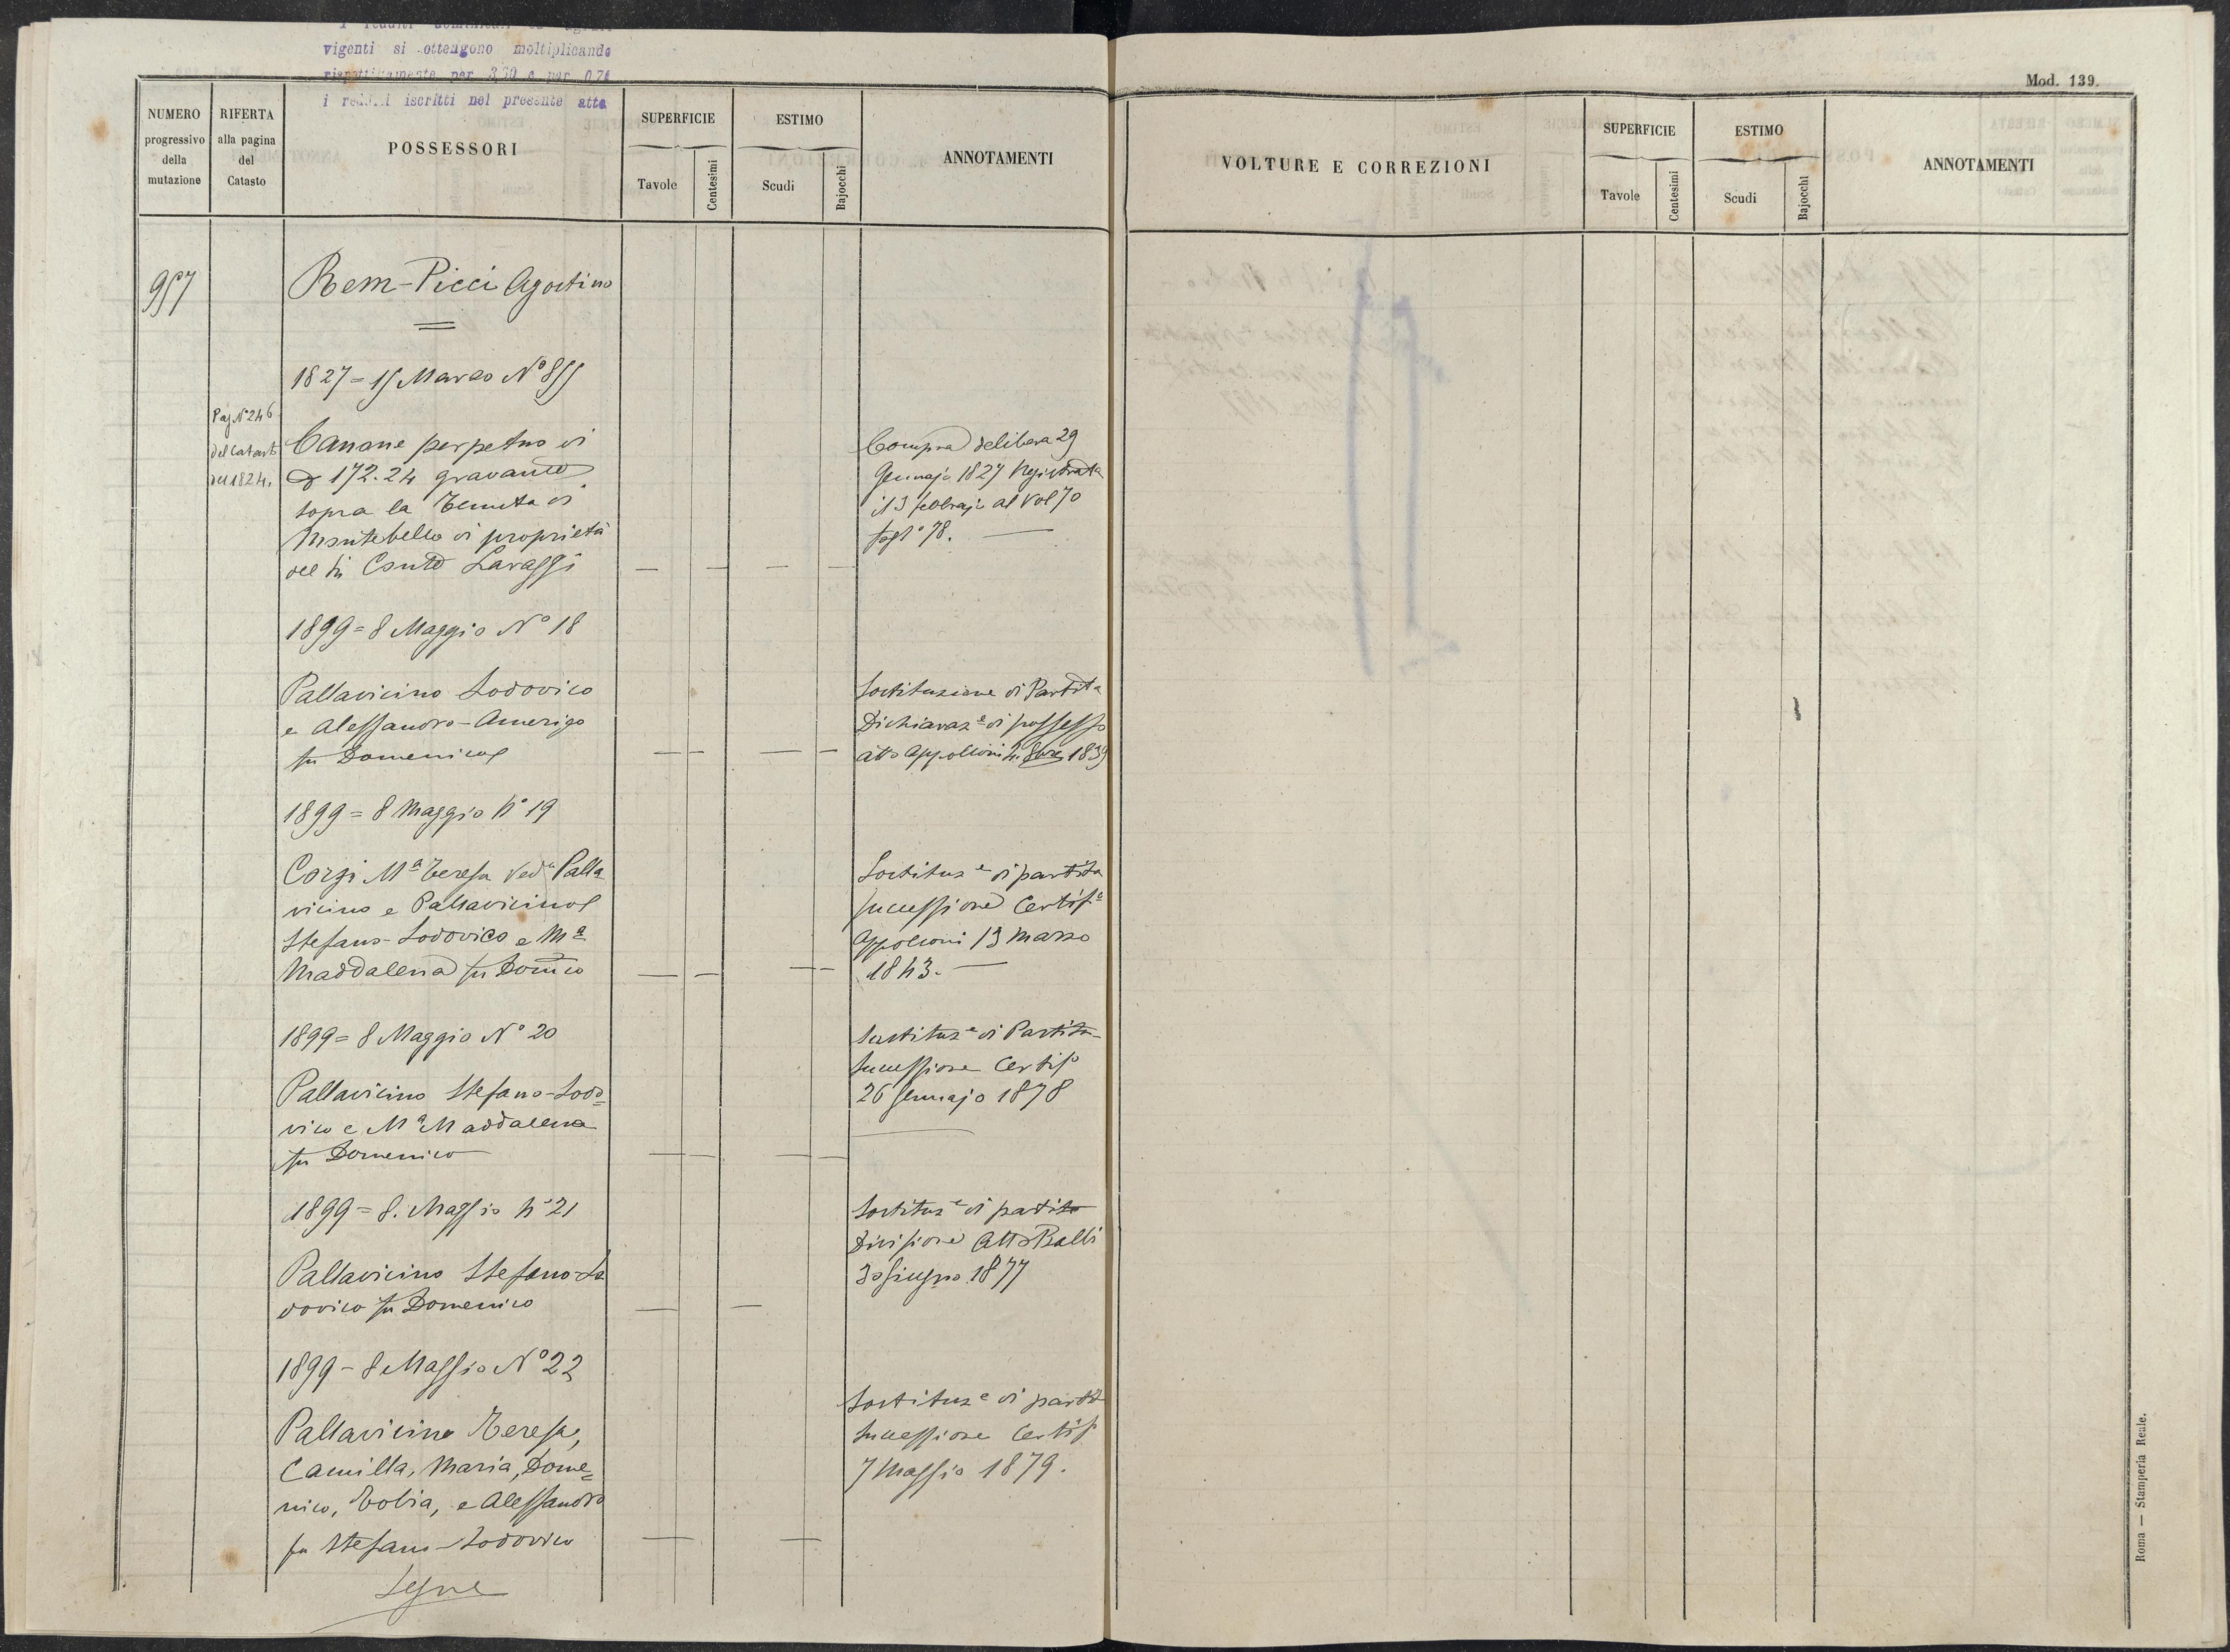 vigenti si ottengono moltiplicando
rispettivamente per 3,70 e per 0,70
i redditi iscritti nel presente atto
Mod. 139.
NUMERO
progressivo
della
mutazione
RIFERTA
alla pagina
del
Catasto
POSSESSORI
SUPERFICIE
Tavole
Centesimi
ESTIMO
Scudi
Bajocchi
ANNOTAMENTI
VOLTURE E CORREZIONI
SUPERFICIE
Tavole
Centesimi
ESTIMO
Scudi
Bajocchi
ANNOTAMENTI
957
Bem-Picci Agostino
1827 = 15 Marzo N° 855
Pag N° 246
del Catasto
del 1824.
Canone perpetuo di
172.24 gravante
sopra la Tenuta di
Montebello di proprietà
del Conte Lavaggi
Compra delibera 29
Gennajo 1827 Registrata
il 3 febbrajo al Vol 70
fogl° 78.
1899 = 8 Maggio N° 18
Pallavicino Lodovico
e Alessandro-Amerigo
fu Domenico
Sostituzione di Partita
Dichiaraze di possesso
atto Appolloni 1839
1899 = 8 Maggio N° 19
Corzi Ma Teresa Veda Palla
vicino e Pallavicino
Stefano-Lodovico e Ma
Maddalena fu Domco
Sostituze di partita
successione Certifo
Appolloni 13 Marzo
1843.
1899 = 8 Maggio N° 20
Pallavicino Stefano-Lodo=
vico e Ma Maddalena
fu Domenico
Sostituze di Partita
Successione Certifo
26 Gennajo 1878
1899 = 8. Maggio N° 21
Pallavicino Stefano-Lo
dovico fu Domenico
Sostituze di partita
Divisione Atto Balbi
30 Giugno 1877
1899 - 8 Maggio N° 22
Pallavicino Teresa,
Camilla, Maria, Dome=
nico, Tobia, e Alessandro
fu Stefano-Lodovico
Sostituze di partita
Successione Certif
7 Maggio 1879.
Segue
Roma — Stamperia Reale.